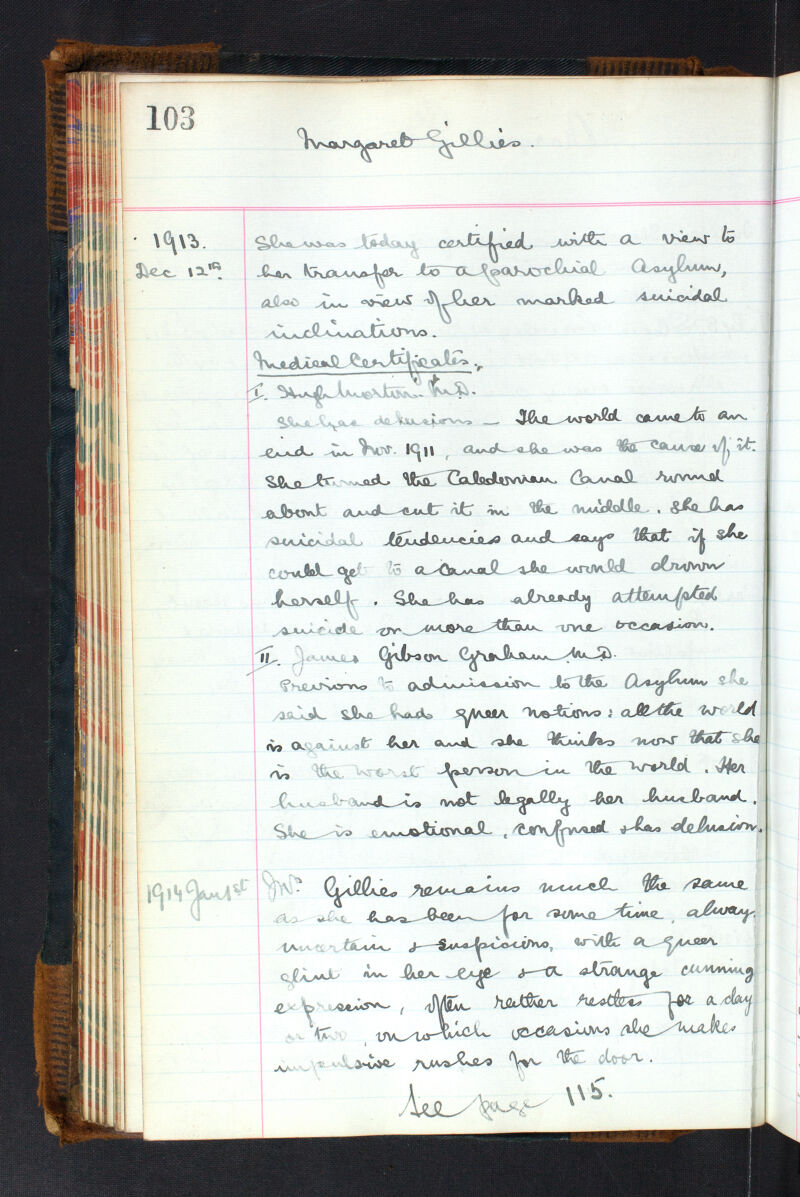 103
Margaret Gillies.
1913.
Dec 12th.
She was today certified with a view to
her transfer to a parochial Asylum,
also in view of her marked suicidal
inclinations.
Medical Certificates:
I. Hugh Morton M.D.
She has delusions – The world came to an
end in Nov. 1911, and she was the cause of it.
She turned the Caledonian Canal round
about and cut it in the middle. She has
suicidal tendencies and says that if she
could get to a canal she would drown
herself. She has already attempted
suicide on more than one occasion.
II. James Gibson Graham M.D.
Previous to admission to the Asylum she
said she had queer notions: all the world
is against her and she thinks now that she
is the worst person in the world. Her
husband is not legally her husband.
She is emotional, confused & has delusion.
1914 Jan 1st
Mrs Gillies remains much the same
as she has been for some time, always
uncertain & suspicious, with a queer
glint in her eye & a strange cunning
expression, often rather restless for a day
or two, on which occasions she makes
impulsive rushes for the door.
See page 115.